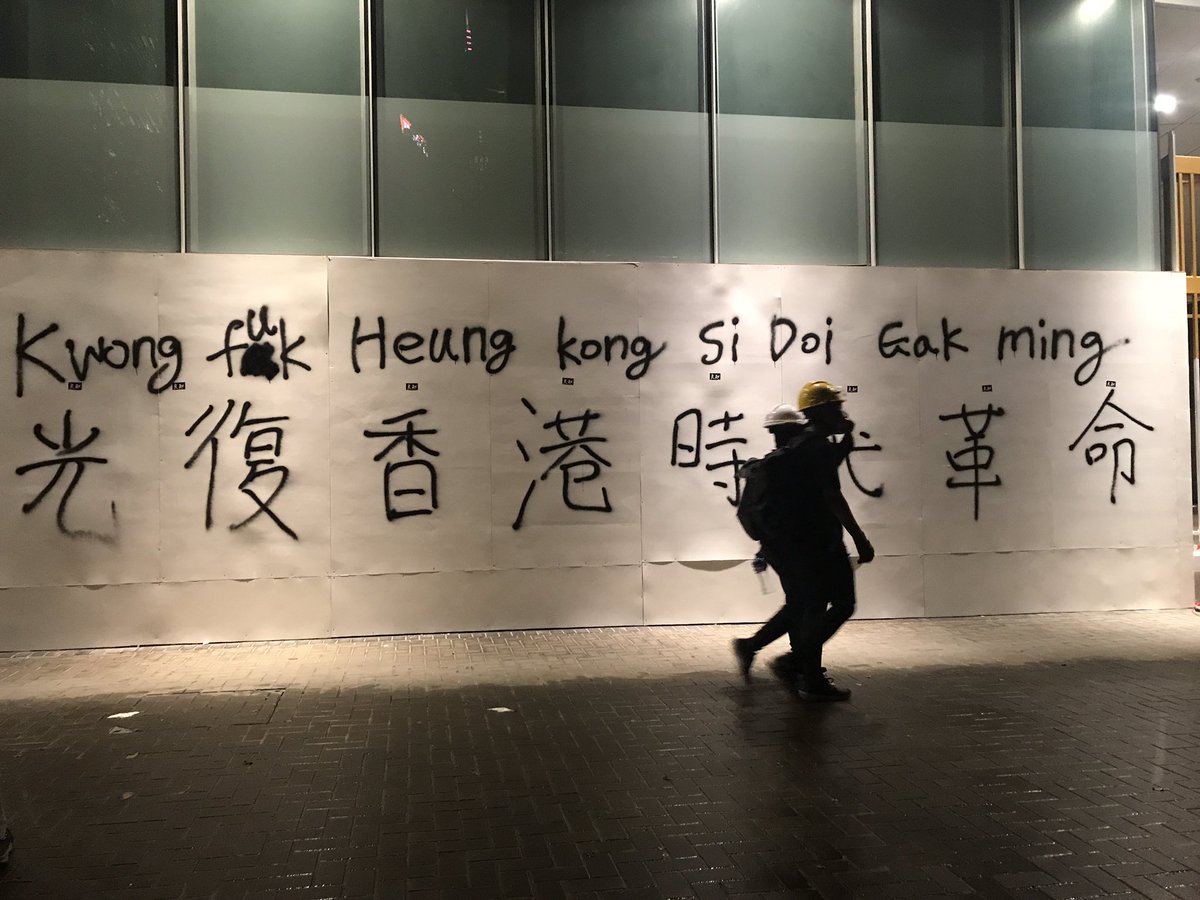 Kwong fuk Heung kong Si Doi Gak ming.
光復香港時代革命